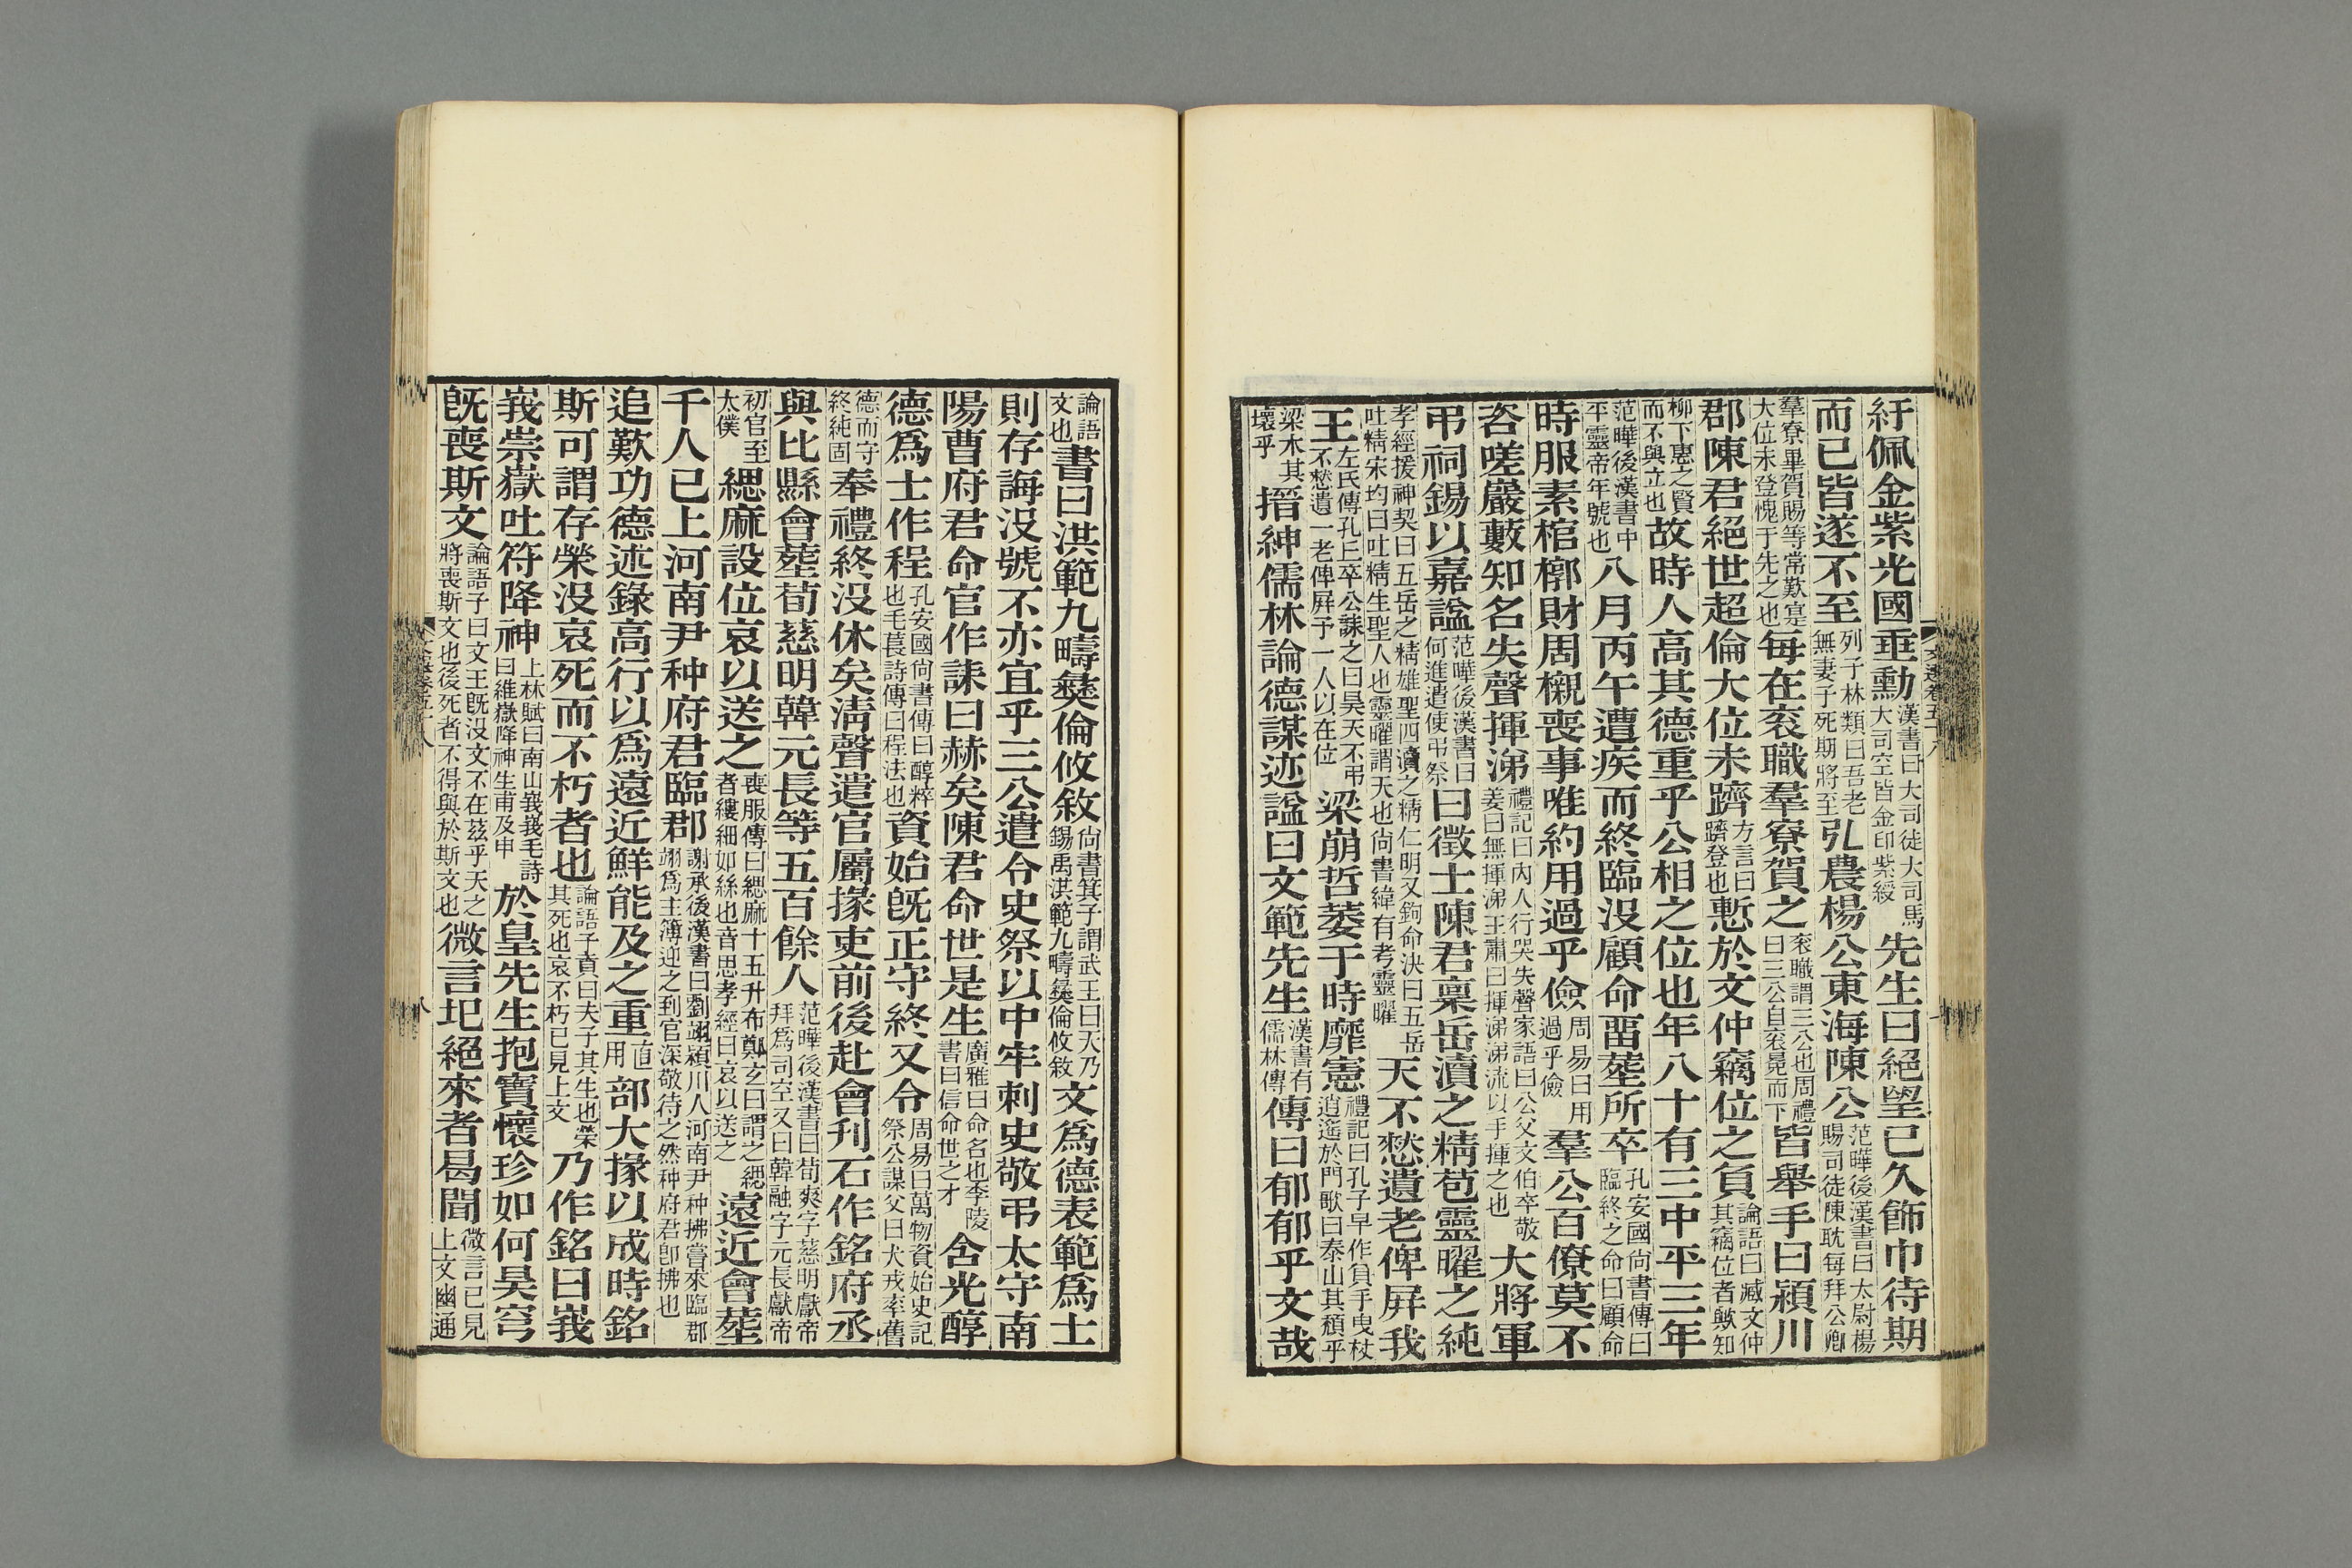 紆佩金紫光國垂勳漢書曰大司徒大司馬大司空皆金印紫綬先生曰絕望已久飾巾待期
而已皆遂不至列子林類曰吾老無妻子死期將至弘農楊公東海陳公范曄後漢書曰太尉楊賜司徒陳耽每拜公卿
羣寮畢賀賜等常歎寔大位未登愧于先之也每在袞職羣寮賀之袞職謂三公也周禮曰三公自袞冕而下皆舉手曰潁川
郡陳君絕世超倫大位未躋方言曰躋登也慙於文仲竊位之負論語曰臧文仲其竊位者歟知
柳下惠之賢而不與立也故時人高其德重乎公相之位也年八十有三中平三年
范曄後漢書中平靈帝年號也八月丙午遭疾而終臨没顧命畱塟所卒孔安國尚書傳曰臨終之命曰顧命
時服素棺槨財周櫬喪事唯約用過乎儉周易曰用過乎儉羣公百僚莫不
咨嗟巖藪知名失聲揮涕禮記曰內人行哭失聲家語曰公父文伯卒敬姜曰無揮涕王肅曰揮涕涕流以手揮之也大將軍
弔祠錫以嘉謚范曄後漢書曰何進遣使弔祭曰徵士陳君稟岳瀆之精苞靈曜之純
孝經援神契曰五岳之精雄聖四瀆之精仁明又鉤命決曰五岳吐精宋均曰吐精生聖人也靈曜謂天也尚書緯有考靈曜天不憖遺老俾屛我
王左氏傳孔丘卒公誄之曰昊天不弔不憖遺一老俾屛予一人以在位梁崩哲萎于時靡憲禮記曰孔子早作負手曳杖逍遙於門歌曰泰山其頹乎
梁木其壞乎搢紳儒林論德謀迹謚曰文範先生漢書有儒林傳傳曰郁郁乎文哉
文選卷五十八
論語文也書曰洪範九疇彝倫攸敘尚書箕子謂武王曰天乃錫禹洪範九疇彝倫攸敘文爲德表範爲士
則存誨没號不亦宜乎三公遣令史祭以中牢刺史敬弔太守南
陽曹府君命官作誄曰赫矣陳君命世是生廣雅曰命名也李陵書曰信命世之才含光醇
德爲士作程孔安國尚書傳曰醇粹也毛萇詩傳曰程法也資始旣正守終又令周易曰萬物資始史記祭公謀父曰犬戎率舊
德而守終純固奉禮終没休矣清聲遣官屬掾吏前後赴會刊石作銘府丞
與比縣會塟荀慈明韓元長等五百餘人范曄後漢書曰荀爽字慈明獻帝拜爲司空又曰韓融字元長獻帝
初官至太僕緦麻設位哀以送之喪服傳曰緦麻十五升布鄭玄曰謂之緦者縷細如絲也音思孝經曰哀以送之遠近會塟
千人已上河南尹种府君臨郡謝承後漢書曰劉翊潁川人河南尹种拂嘗來臨郡翊爲主簿迎之到官深敬待之然种府君卽拂也
追歎功德述錄高行以爲遠近鮮能及之重直用部大掾以成時銘
斯可謂存榮没哀死而不朽者也論語子貢曰夫子其生也榮其死也哀不朽已見上文乃作銘曰峩
峩崇嶽吐符降神上林賦曰南山峩峩毛詩曰維嶽降神生甫及申於皇先生抱寶懷珍如何昊穹
旣喪斯文論語子曰文王旣没文不在茲乎天之將喪斯文也後死者不得與於斯文也微言圯絕來者曷聞微言已見上文幽通
八